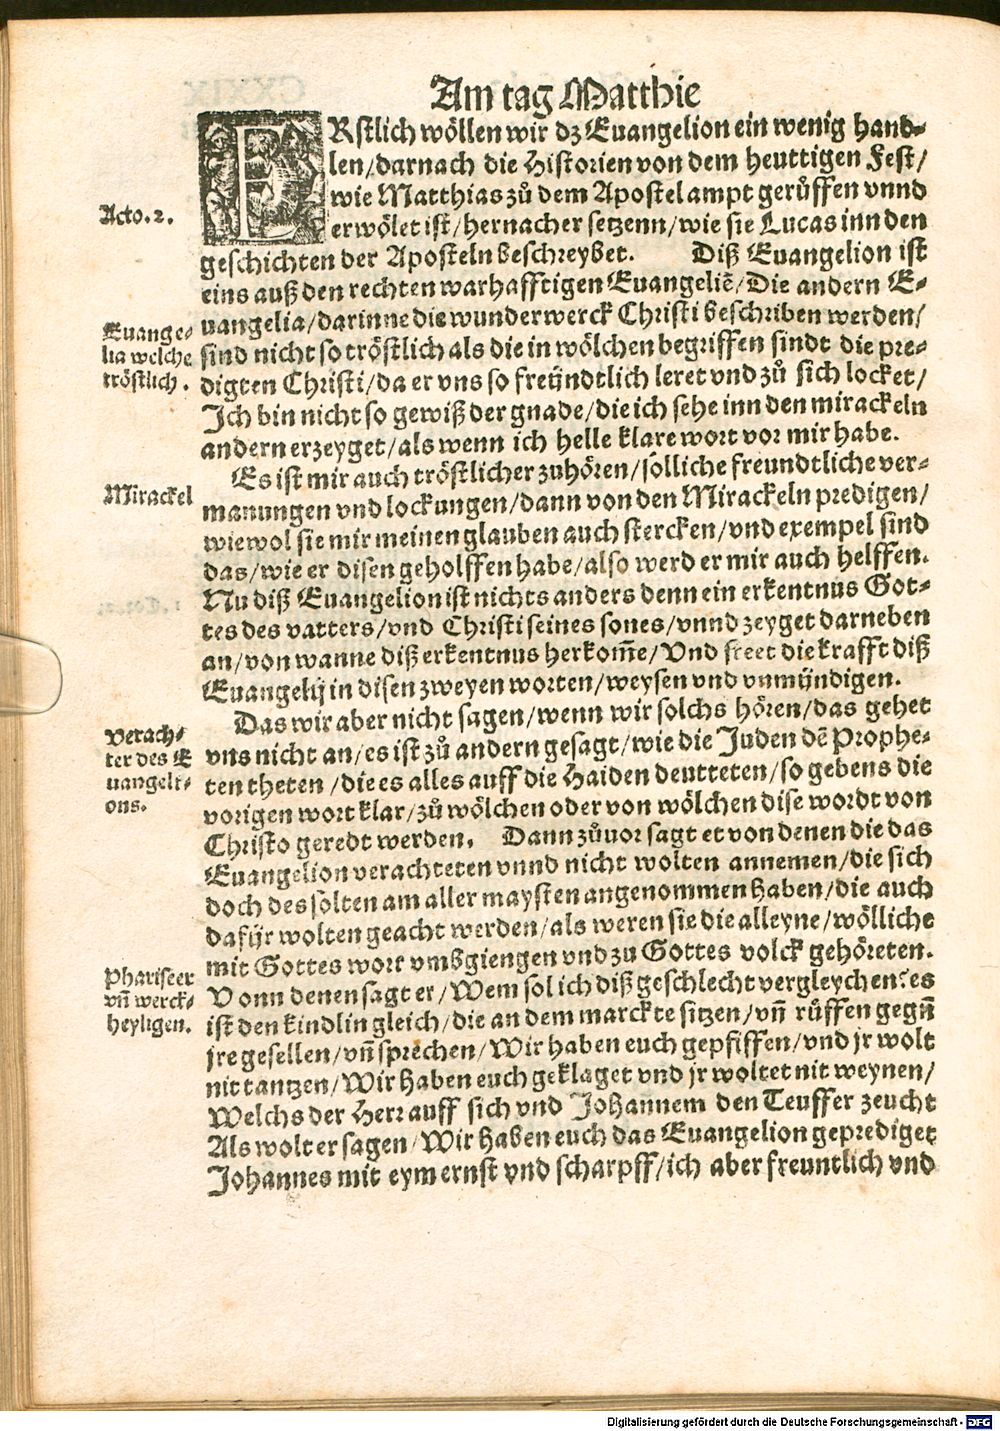 Am tag Matthie
ERstlich wöllen wir dz Euangelion ein wenig hand-
len/darnach die Historien von dem heuttigen Fest/
wie Matthias zů dem Apostelampt gerůffen vnnd
erwölet ist/hernacher setzenn/wie sie Lucas inn den
geschichten der Aposteln beschreybet. Diß Euangelion ist
eins auß den rechten warhafftigen Euangeliē/Die andern E-
uangelia/darinne die wunderwerck Christi beschriben werden/
sind nicht so tröstlich als die in wölchen begriffen sindt die pre-
digten Christi/da er vns so freÿndtlich leret vnd zů sich locket/
Ich bin nicht so gewiß der gnade/die ich sehe inn den mirackeln
andern erzeyget/als wenn ich helle klare wort vor mir habe.
Es ist mir auch tröstlicher zuhören/sölliche freundtliche ver-
manungen vnd lockungen/dann von den Mirackeln predigen/
wiewol sie mir meinen glauben auch stercken/vnd exempel sind
das/wie er disen geholffen habe/also werd er mir auch helffen.
Nu diß Euangelion ist nichts anders denn ein erkentnus Got-
tes des vatters/vnd Christi seines sones/vnnd zeyget darneben
an/von wanne diß erkentnus herkom̄e/Vnd steet die krafft diß
Euangelij in disen zweyen worten/weysen vnd vnmÿndigen.
Das wir aber nicht sagen/wenn wir solchs hören/das gehet
vns nicht an/es ist zů andern gesagt/wie die Juden dē Prophe-
ten theten/die es alles auff die Haiden deutteten/so gebens die
vorigen wort klar/zů wölchen oder von wölchen dise wordt von
Christo geredt werden. Dann zůuor sagt et von denen die das
Euangelion verachteten vnnd nicht wolten annemen/die sich
doch des solten am aller maysten angenommen haben/die auch
dafÿr wolten geacht werden/als weren sie die alleyne/wölliche
mit Gottes wort vmbgiengen vnd zu Gottes volck gehöreten.
Vonn denen sagt er/Wem sol ich diß geschlecht vergleychen? es
ist den kindlin gleich/die an dem marckte sitzen/vn̄ růffen gegn̄
jre gesellen/vn̄ sprechen/Wir haben euch gepfiffen/vnd jr wolt
nit tantzen/Wir haben euch geklaget vnd jr woltet nit weynen/
Welchs der Herr auff sich vnd Johannem den Teuffer zeucht
Als wolt er sagen/Wir haben euch das Euangelion geprediget
Johannes mit eym ernst vnd scharpff/ich aber freuntlich vnd
Acto. 2.
Euange-
lia welche
tröstlich.
Mirackel
Verach-
ter des E
uangeli-
ons.
Phariseer
vn̄ werck-
heyligen.
Digitalisierung gefördert durch die Deutsche Forschungsgemeinschaft - DFG